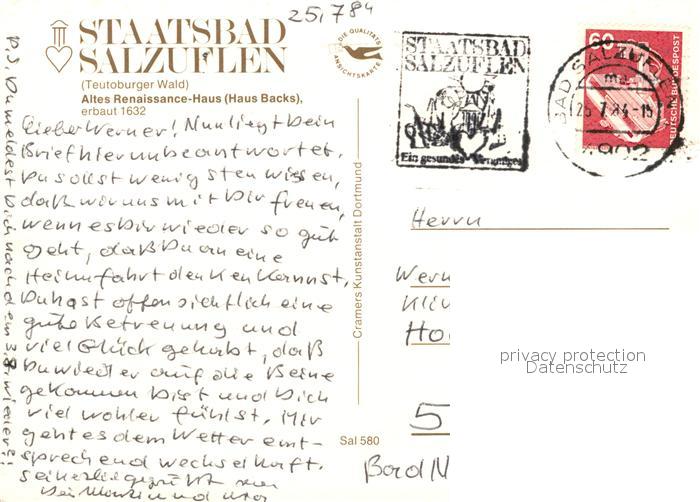 25.7.84
STAATSBAD
SALZUFLEN
(Teutoburger Wald)
Altes Renaissance-Haus (Haus Backs),
erbaut 1632
DIE QUALITÄTS
ANSICHTSKARTE
Lieber Werner! Nun liegt Dein
Brief hier unbeantwortet.
Du sollst wenigsten wissen,
daß wir uns mit Dir freuen,
wenn es Dir wieder so gut
geht, daß Du an eine
Heimfahrt denken kannst.
Du hast offensichtlich eine
gute Betreuung und
viel Glück gehabt, daß
Du wieder auf die Beine
gekommen bist und Dich
viel wohler fühlst. Mir
geht es dem Wetter ent-
sprechend wechselhaft.
Sei herzlich gegrüßt von
P.S. Du meldest Dich nach dem 3.8. wieder?!
Cramers Kunstanstalt Dortmund
Sal 580
STAATSBAD
SALZUFLEN
Ein gesundes Vergnügen
BAD SALZUFLEN
25.7.84-15
4902
60
DEUTSCHE BUNDESPOST
Herrn
Wern
Klin
Ho
5
Bad N
privacy protection
Datenschutz